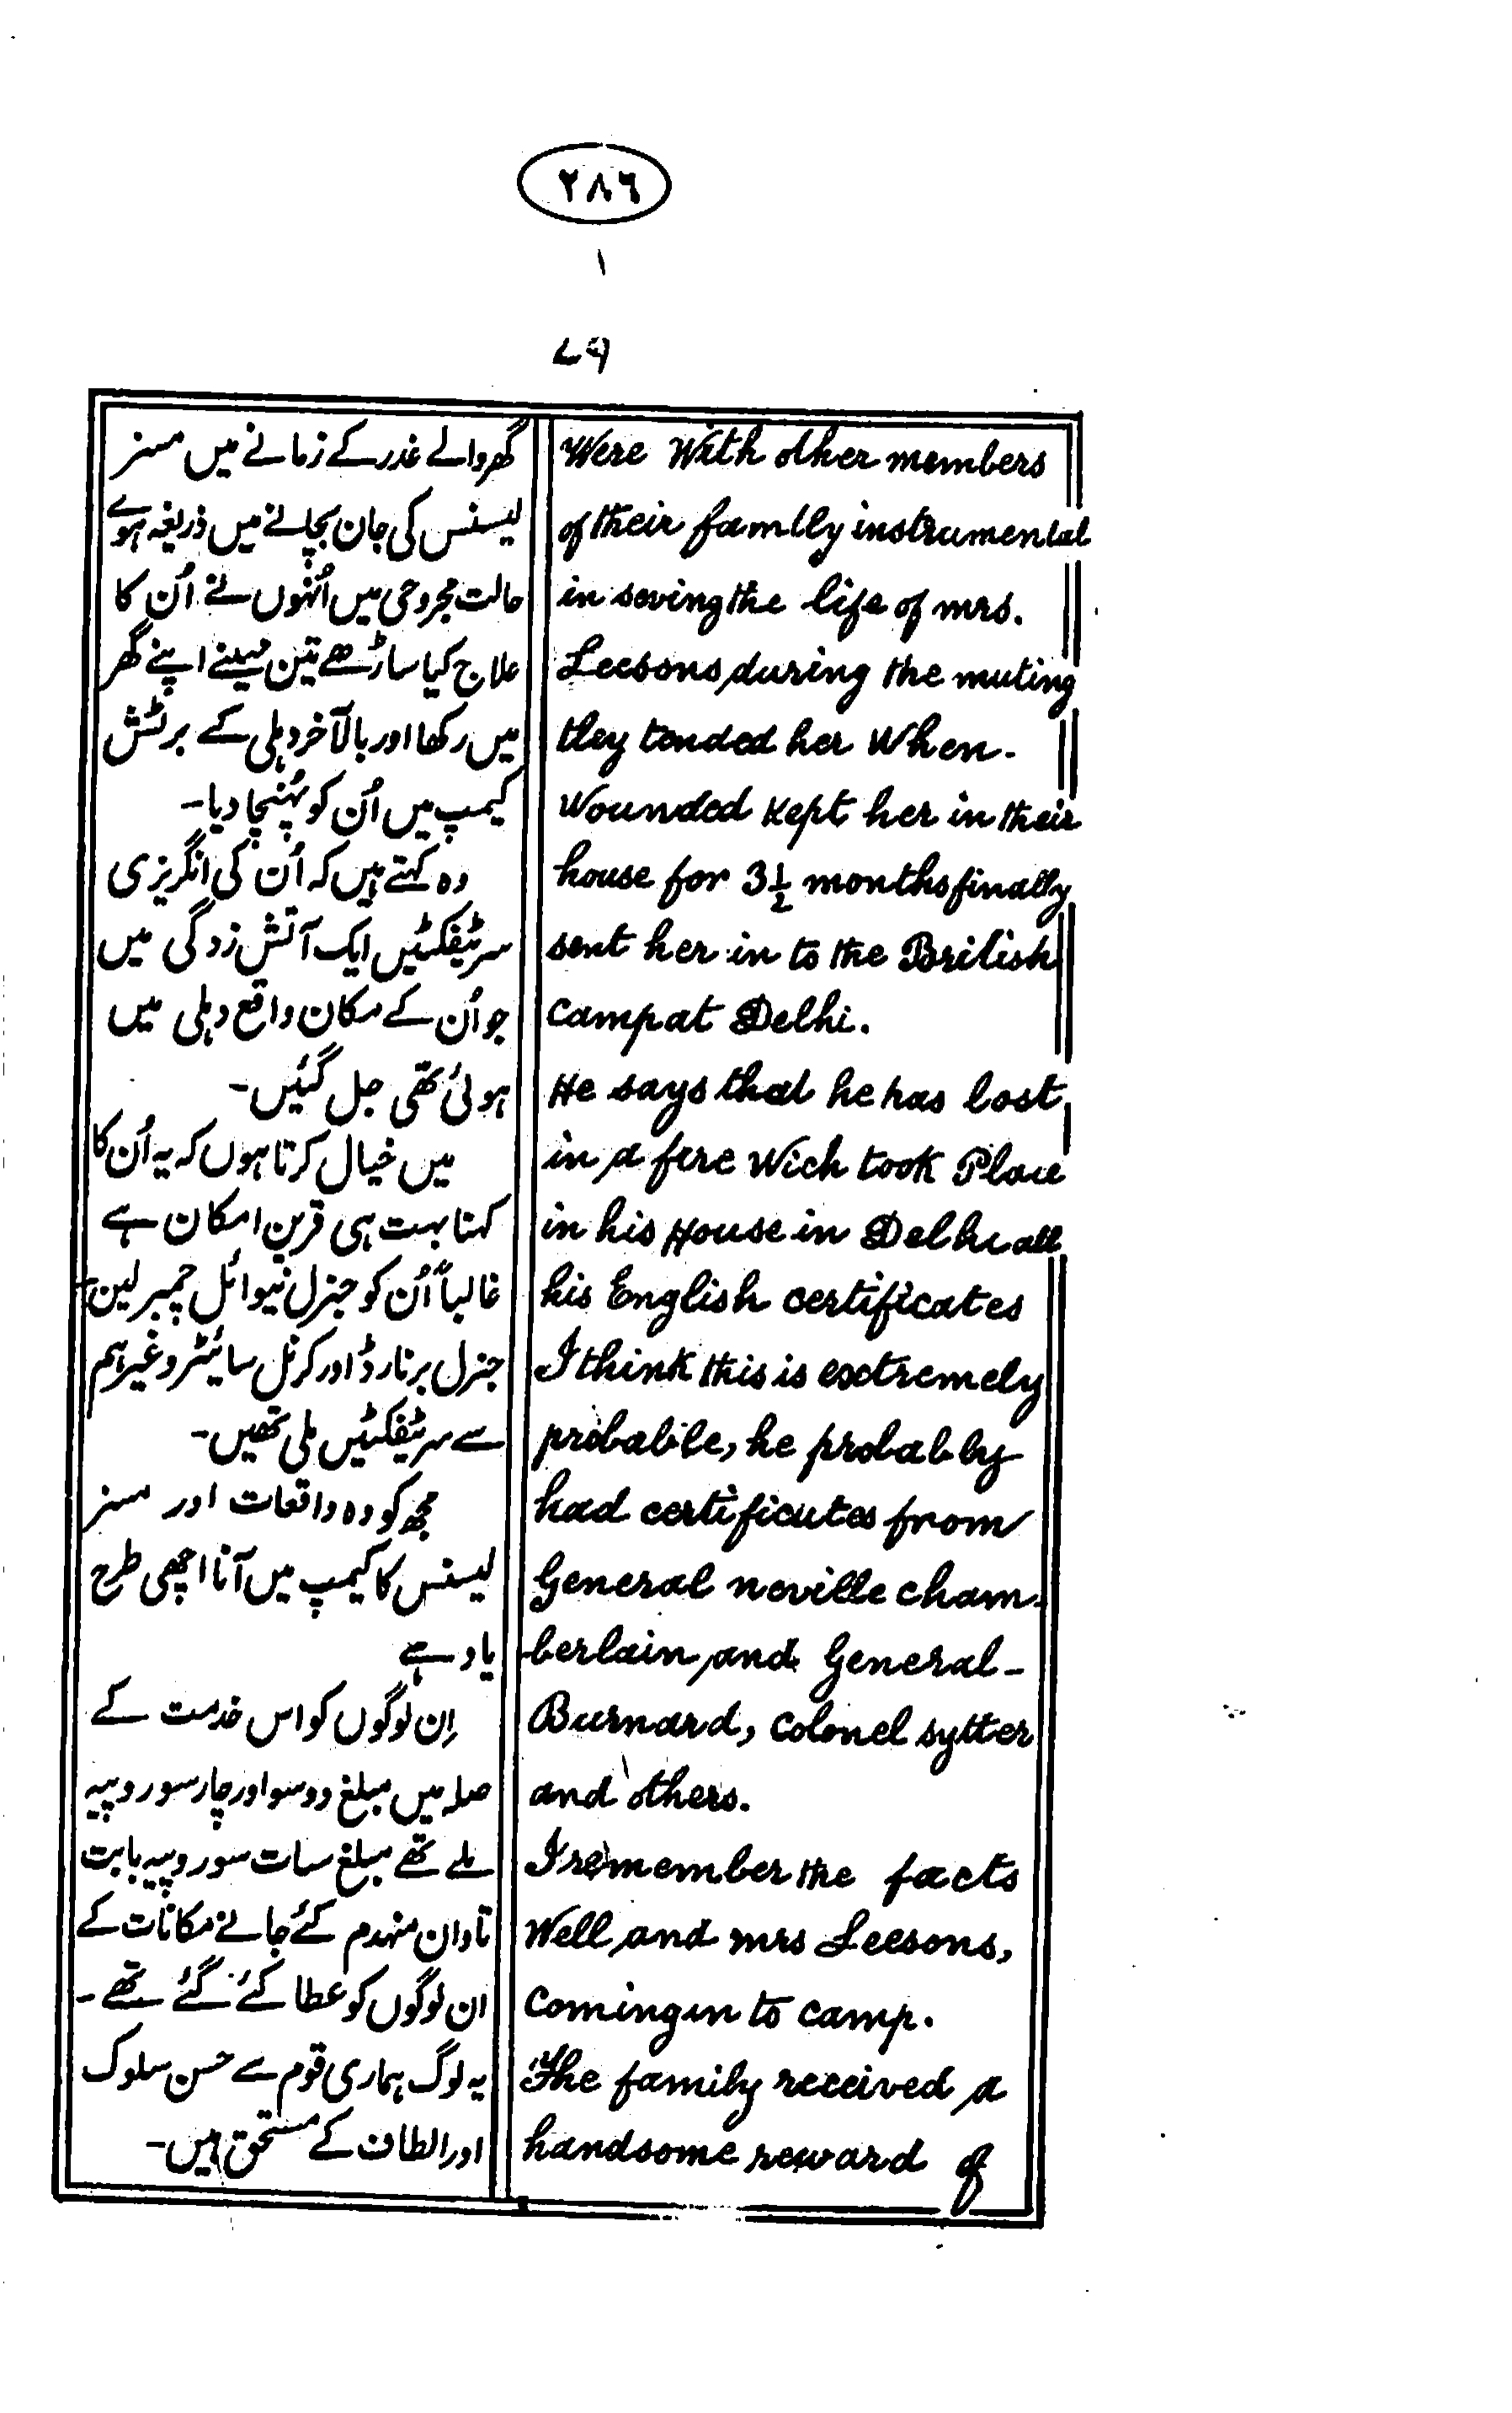 ۲۸۶
۷۹
Were With other members
of their famlly instrumental
in soving the life of mrs.
Leesons, during the muting
tley tended her When.
Wounded kept her in their
house for 3½ months finally
sent her in to the British
Camp at Delhi.
He says that he has lost
in a fire Wich took Place
in his House in Delhi all
his English certificates
I think this is extremely
probabile, he probabby
had certificutes from
General neville cham-
berlain, and General-
Burnard, Colonel sytter
and others.
I remember the facts
Well, and mrs Leesons,
Coming in to camp.
The family received, a
handsome reward of
گھر والے غدر کے زمانے میں مسنر
لیسنس کی جان بچانے میں ذریعہ ہوے
حالت مجروحی میں اُنہوں نے اُن کا
علاج کیا ساڑھے تین مہینے اپنے گھر
میں رکھا اور بالآخر دہلی کے برٹش
کیمپ میں اُن کو پُہنچا دیا۔
وہ کہتے ہیں کہ اُن کی انگریزی
سرٹیفکٹیں ایک آتش زدگی میں
جو اُن کے مکان واقع دہلی میں
ہوئی تھی جل گئیں۔
میں خیال کرتا ہوں کہ یہ اُن کا
کہنا بہت ہی قرین امکان ہے
غالباً اُن کو جنرل نیوائل چمبرلین
جنرل برنارڈ اور کرنل سائیٹر وغیرہم
سے سرٹیفکٹیں ملی تھیں۔
مجھ کو وہ واقعات اور مسنر
لیسنس کا کیمپ میں آنا اچھی طرح
یاد ہے
اِن لوگوں کو اس خدمت کے
صلہ میں مبلغ دو سو اور چار سو روپیہ
ملے تھے مبلغ سات سو روپیہ بابت
تاوان منہدم کئے جانے مکانات کے
ان لوگوں کو عطا کئے گئے تھے۔
یہ لوگ ہماری قوم سے حسن سلوک
اور الطاف کے مستحق ہیں۔